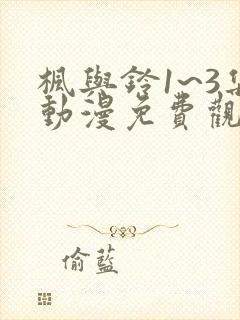 楓與鈴1~3集
動漫免費觀
偷藍